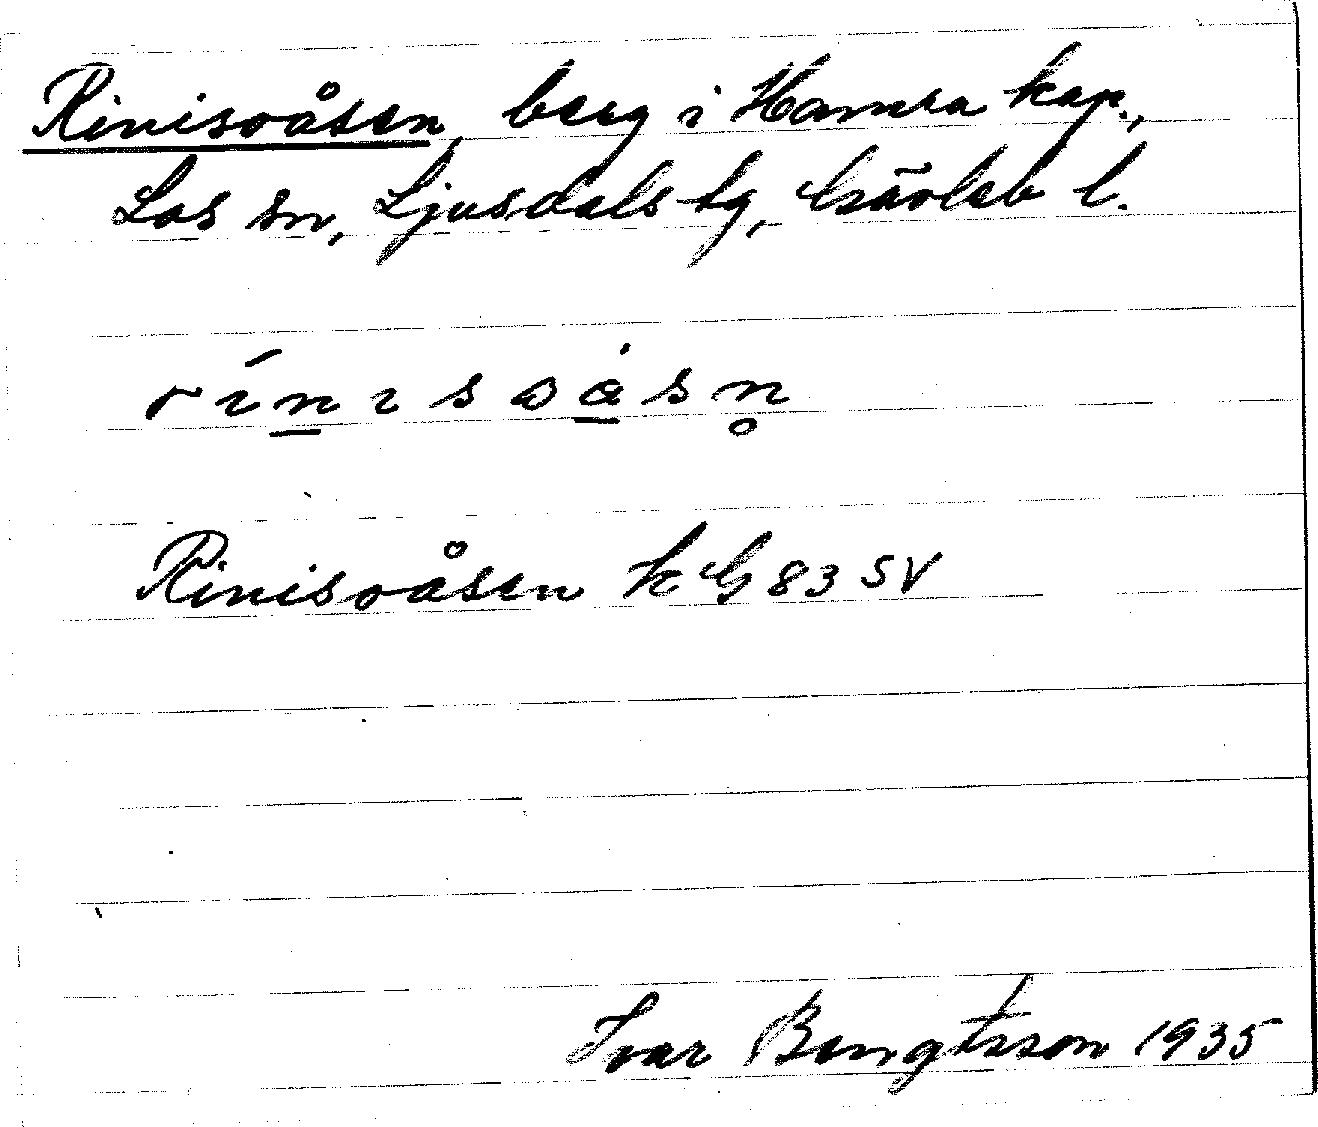 Rinisvåsen, berg i Hamra kap.,
Los sn, Ljusdals tg, Gävleb l.
Rinisvåsen kG 83 SV
Ivar Bengtsson 1935